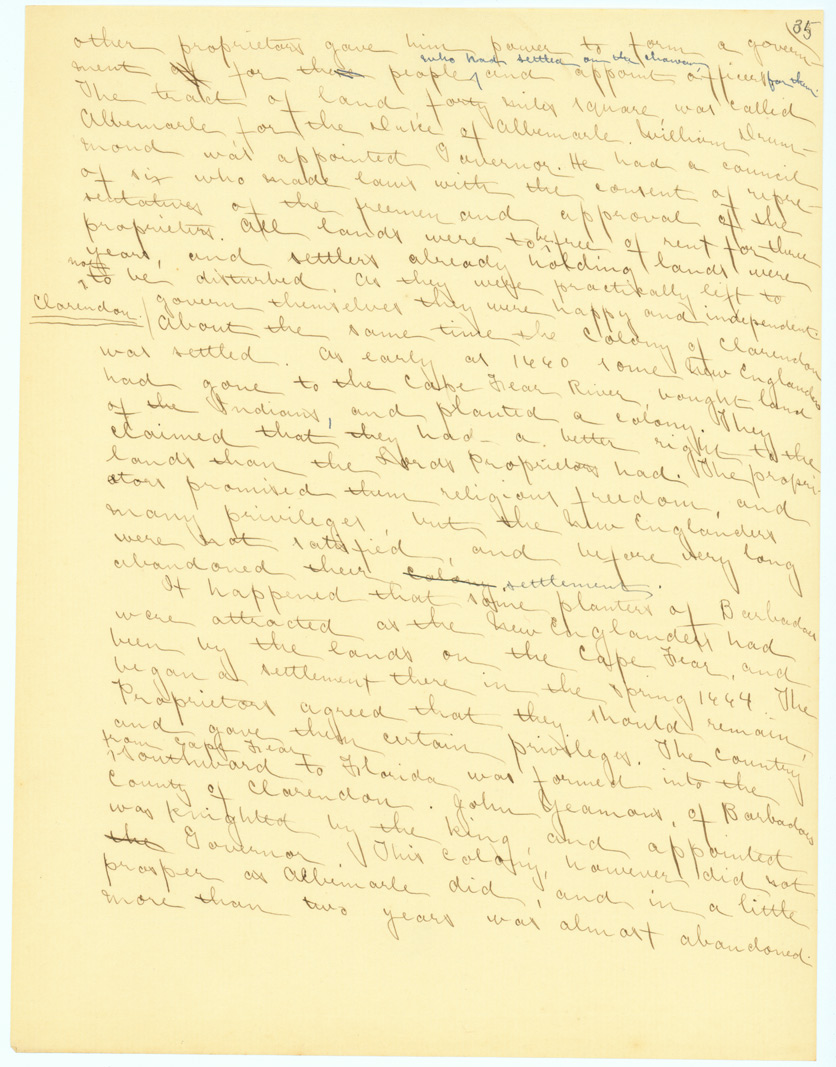 35
other proprietors gave him power to form a govern-
who had settled on the Chowan
ment of for their people, and appoint officers for them.
The tract of land forty miles square was called
Albemarle for the Duke of Albemarle. William Drum-
mond was appointed Governor. He had a council
of six who made laws with the consent of repre-
sentatives of the freemen and approval of the
proprietors. All lands were to be free of rent for three
years, and settlers already holding lands were
not
to be disturbed. As they were practically left to
govern themselves they were happy and independent.
Clarendon. / About the same time the Colony of Clarendon
was settled. As early as 1660 some New Englanders
had gone to the Cape Fear River, bought land
of the Indians, and planted a colony. They
claimed that they had a better right to the
lands than the Lords Proprietors had. The propri-
etors promised them religious freedom, and
many privileges, but the New Englanders
were not satisfied, and before very long
abandoned their colony settlement.
It happened that some planters of Barbados
were attracted as the New Englanders had
been by the lands on the Cape Fear, and
began a settlement there in the Spring 1664. The
Proprietors agreed that they should remain,
and gave them certain privileges. The country
from Cape Fear
southward to Florida was formed into the
County of Clarendon. John Yeamans, of Barbados
was knighted by the King and appointed
the Governor. This colony, however did not
prosper as Albemarle did, and in a little
more than two years was almost abandoned.